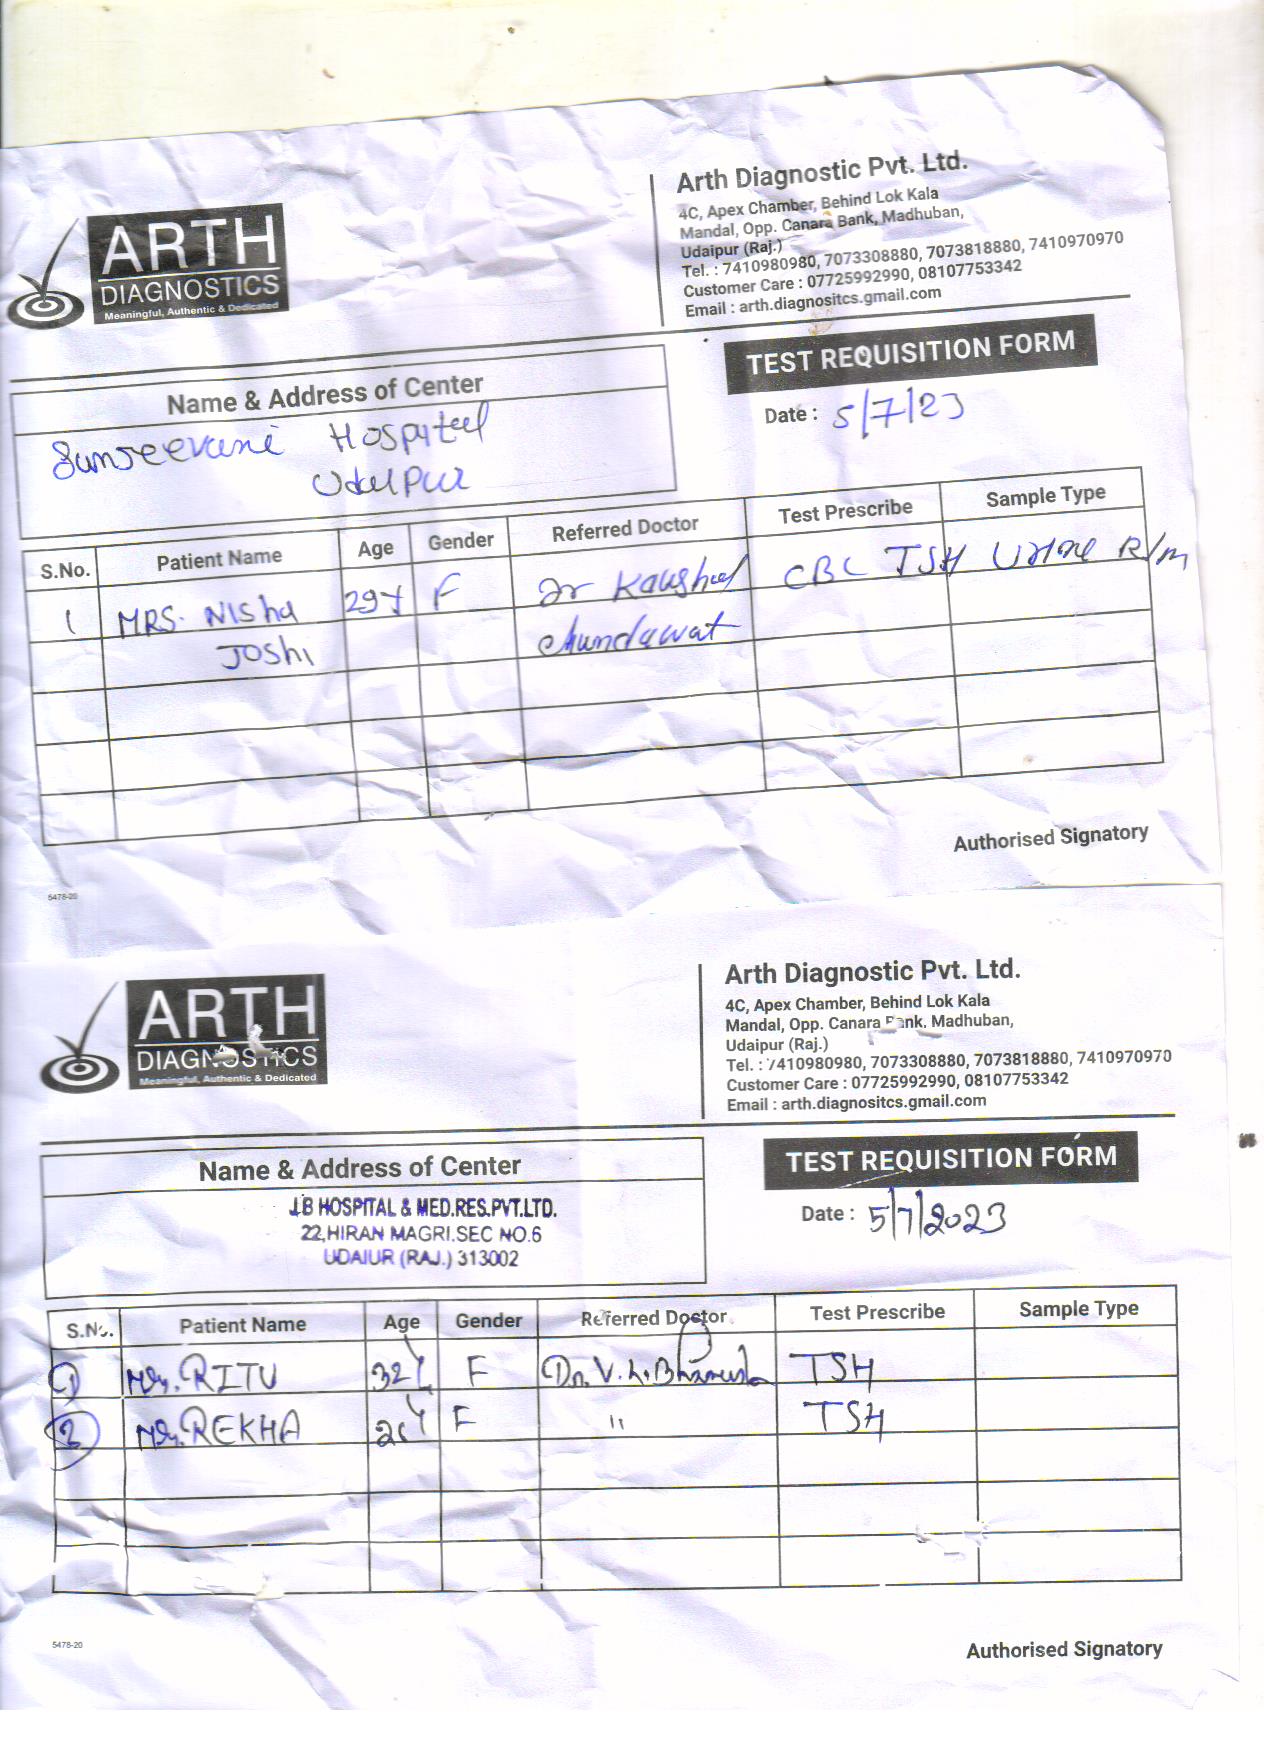 ARTH
DIAGNOSTICS
Meaningful, Authentic & Dedicated
Arth Diagnostic Pvt. Ltd.
4C, Apex Chamber, Behind Lok Kala
Mandal, Opp. Canara Bank, Madhuban,
Udaipur (Raj.)
Tel. : 7410980980, 7073308880, 7073818880, 7410970970
Customer Care : 07725992990, 08107753342
Email : arth.diagnositcs.gmail.com
TEST REQUISITION FORM
Date : 5/7/23
Name & Address of Center
Hospital
Udaipur
S.No. Patient Name Age Gender Referred Doctor Test Prescribe Sample Type
1 MRS. Nisha 29Y F Dr Kaushal CBC TSH Urine R/m
Joshi Chundawat
Authorised Signatory
5478-20
ARTH
DIAGNOSTICS
Meaningful, Authentic & Dedicated
Arth Diagnostic Pvt. Ltd.
4C, Apex Chamber, Behind Lok Kala
Mandal, Opp. Canara Bank, Madhuban,
Udaipur (Raj.)
Tel. : 7410980980, 7073308880, 7073818880, 7410970970
Customer Care : 07725992990, 08107753342
Email : arth.diagnositcs.gmail.com
TEST REQUISITION FORM
Date : 5/7/2023
Name & Address of Center
J.B HOSPITAL & MED.RES.PVT.LTD.
22,HIRAN MAGRI.SEC NO.6
UDAIUR (RAJ.) 313002
S.No. Patient Name Age Gender Referred Doctor Test Prescribe Sample Type
1 RITU 32Y F Dr. V. TSH
2 REKHA F " TSH
5478-20
Authorised Signatory